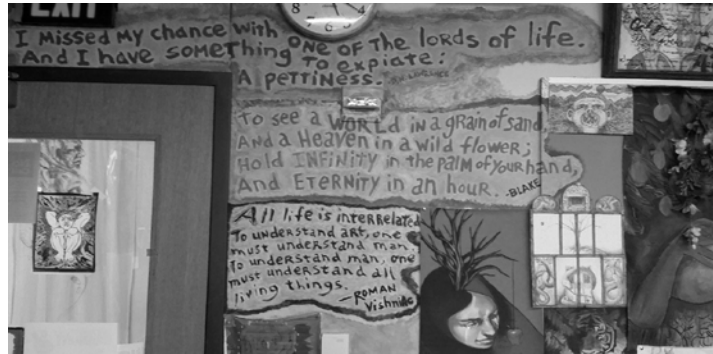 EXIT
8
7
6
5
4
I Missed My chance with ONE OF THE LORDS OF LIFE.
And I have something to expiate:
A PETTINESS.
To see a WORLD in a grain of sand,
And a Heaven in a wild flower;
Hold INFINITY in the palm of your hand,
And ETERNITY in an hour. -BLAKE
All life is interrelated
To understand art, one
must understand man.
To understand man, one
must understand all
living things.
—ROMAN
Vishniac